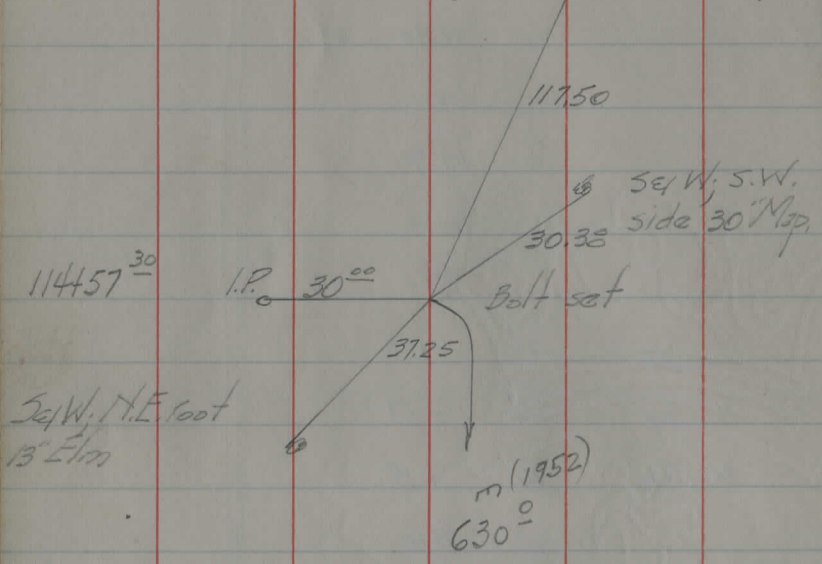 117.50
S & W; S.W.
side 30" Map.
30.38
114+57 30
I.P. 30 00
Bolt set
37.25
S & W; N.E. root
13" Elm
m (1952)
630 0